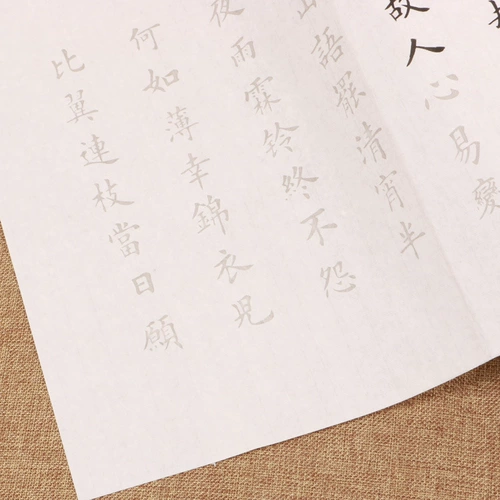 故人心易變
山語罷清宵半
夜雨霖鈴終不怨
何如薄幸錦衣兒
比翼連枝當日願